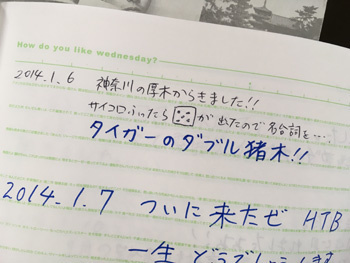 How do you like wednesday?
2014.1.6 神奈川の厚木からきました!!
サイコロふったら⚄が出たので名台詞を…
タイガーのダブル猪木!!
2014.1.7 ついに来たぜ HTB
一生 どうでしょうします